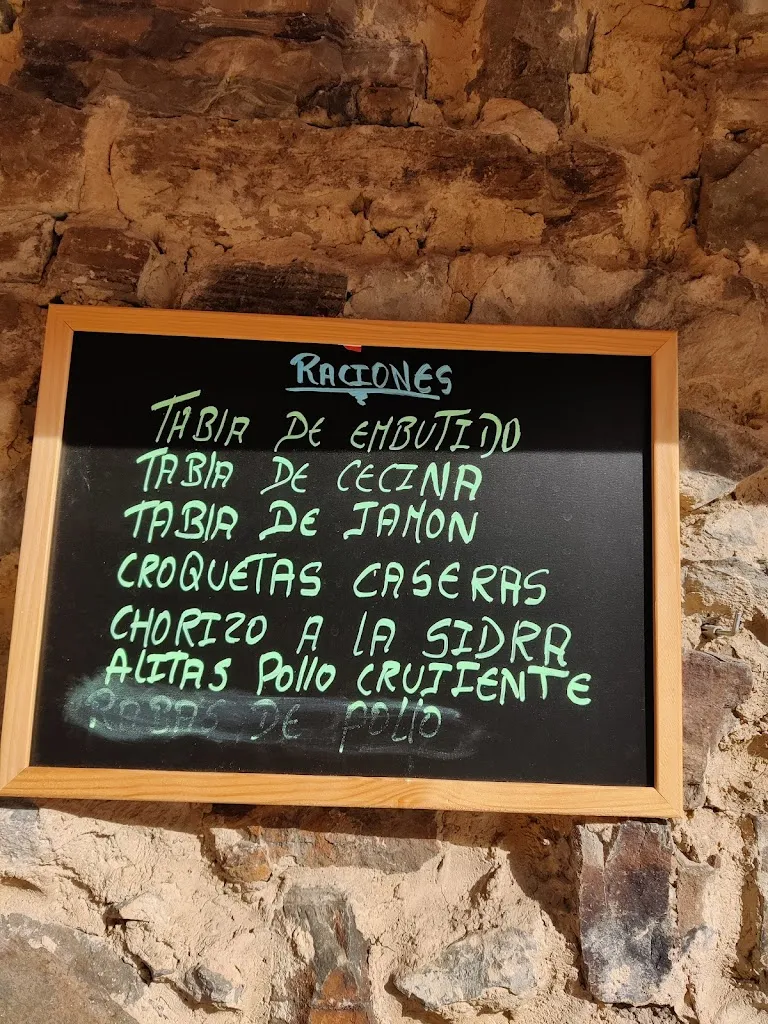 RACIONES
TABlA DE EMBUTIDO
TABlA DE CECINA
TABlA DE JAMON
CROQUETAS CASERAS
CHORIZO A lA SIDRA
ALITAS POllO CRUJIENTE
RABAS DE POLLO